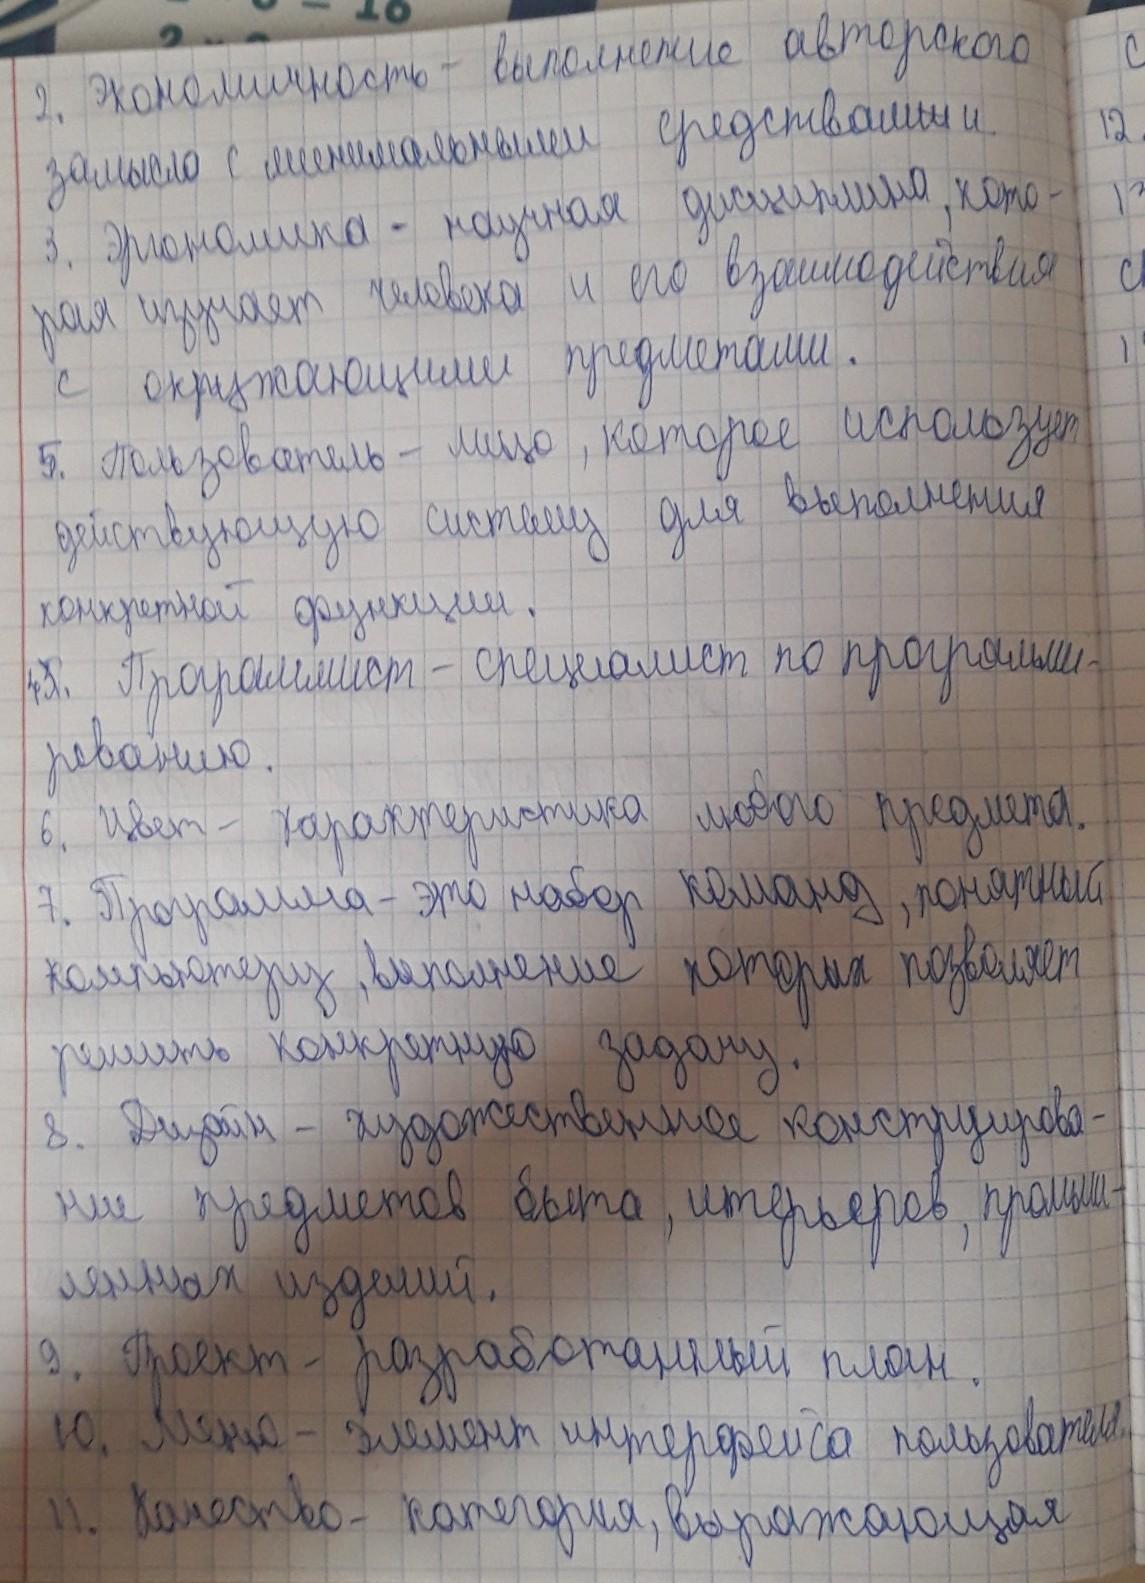 2. Экономичность - выполнение авторского
замысла с минимальными средствами.
3. Эргономика - научная дисциплина, кото-
рая изучает человека и его взаимодействия
с окружающими предметами.
5. Пользователь - лицо, которое использует
действующую систему для выполнения
конкретной функции.
4. Программист - специалист по программи-
рованию.
6. Цвет - характеристика любого предмета.
7. Программа - это набор команд, понятный
компьютеру, выполнение которых позволяет
решить конкретную задачу.
8. Дизайн - художественное конструирова-
ние предметов быта, интерьеров, промыш-
ленных изделий.
9. Проект - разработанный план.
10. Меню - элемент интерфейса пользователя.
11. Качество - категория, выражающая
12